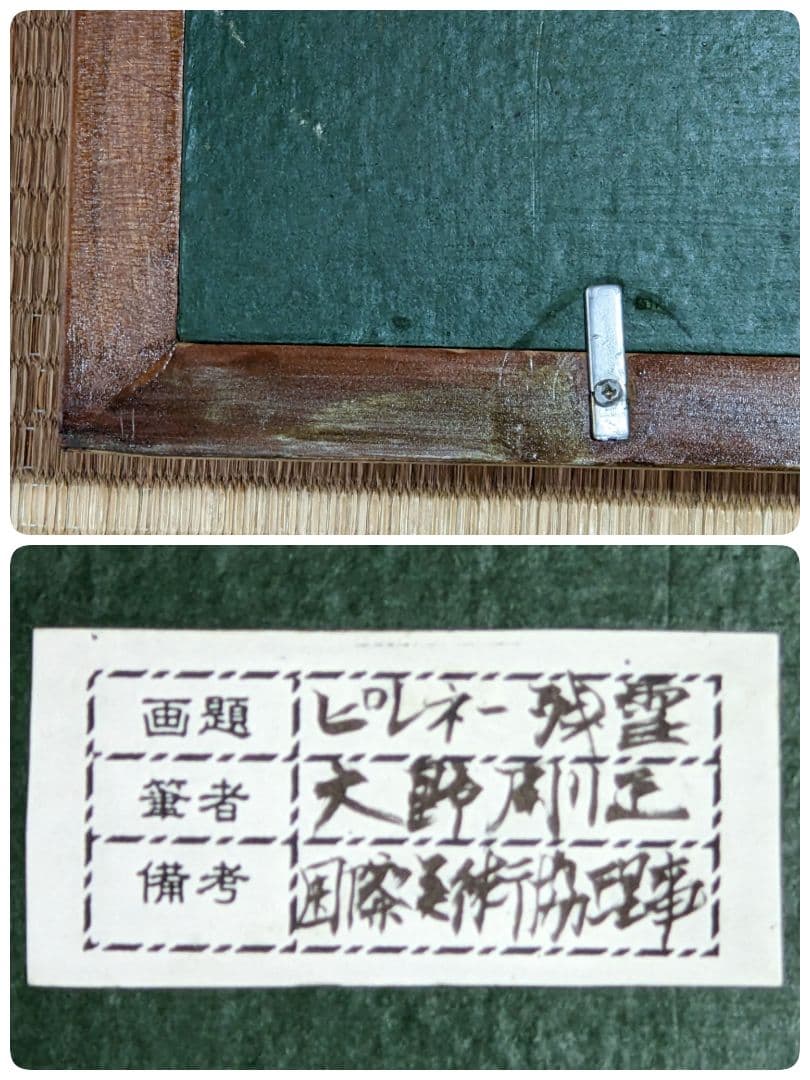 画題 ピレネー残雪
筆者 大野剛正
備考 国際美術協理事